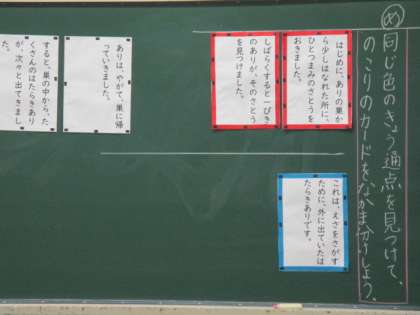 め
同じ色のきょう通点を見つけて、
のこりのカードをなかま分けしよう。
はじめに、ありの巣か
ら少しはなれた所に、
ひとつまみのさとうを
おきました。
しばらくすると一ぴき
のありが、そのさとう
を見つけました。
これは、えさをさがす
ために、外に出ていたは
たらきありです。
ありは、やがて、巣に帰
っていきました。
すると、巣の中から、た
くさんのはたらきあり
が、次々と出てきまし
た。